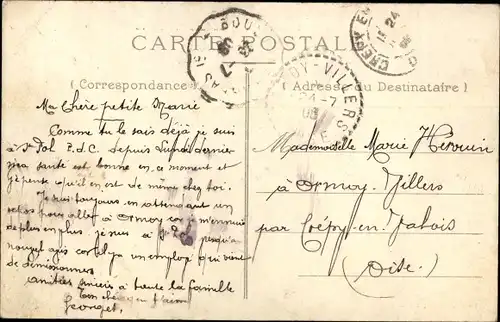 CARTE POSTALE
(Correspondance)
(Adresse du Destinataire)
Ma chère petite Marie
Comme tu le sais déjà je suis
à St Pol P.d.C. depuis Lundi dernier
ma santé est bonne en ce moment et
je pense qu'il en est de même chez toi.
Je suis toujours en attendant un
pour aller à Ormoy car je m'ennuie
de plus en plus je suis à
car il y a un emploi qui vient
de démissionner
amitiés à toute la famille
Ton
Georges,
Mademoiselle Marie Hérouin
à Ormoy Villers
par Crépy-en-Valois
(Oise)
OY-VILLERS
24-7
CREPY EN
24